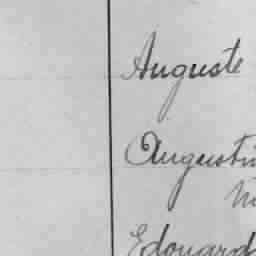 Auguste
Augustin
Edouard